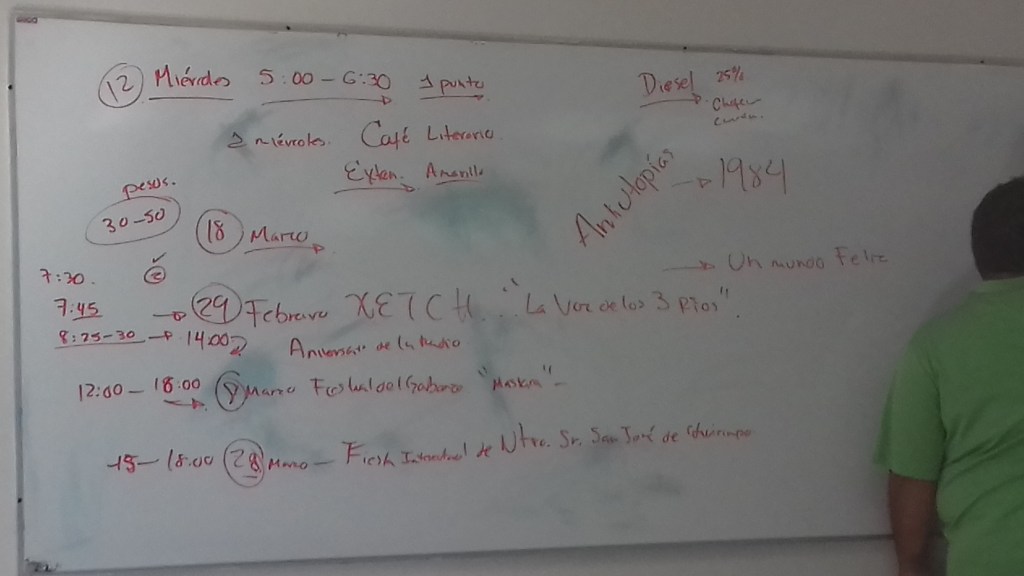 12 Miércoles 5:00 - 6:30 1 punto
2 miércoles. Café Literario.
Exten. Amarillo
Diesel 25%
Antiutopías → 1984
→ Un mundo Feliz
pesos.
30-50
18 Marzo
7:30.
7:45 → 29 Febrero XETCH... "La Voz de los 3 Ríos".
8:25-30 → 14:00
Aniversario de la Radio
12:00 - 18:00 8 Marzo Festival del
15 - 18:00 28 Marzo - Fiesta de Ntro. Sr. San José de